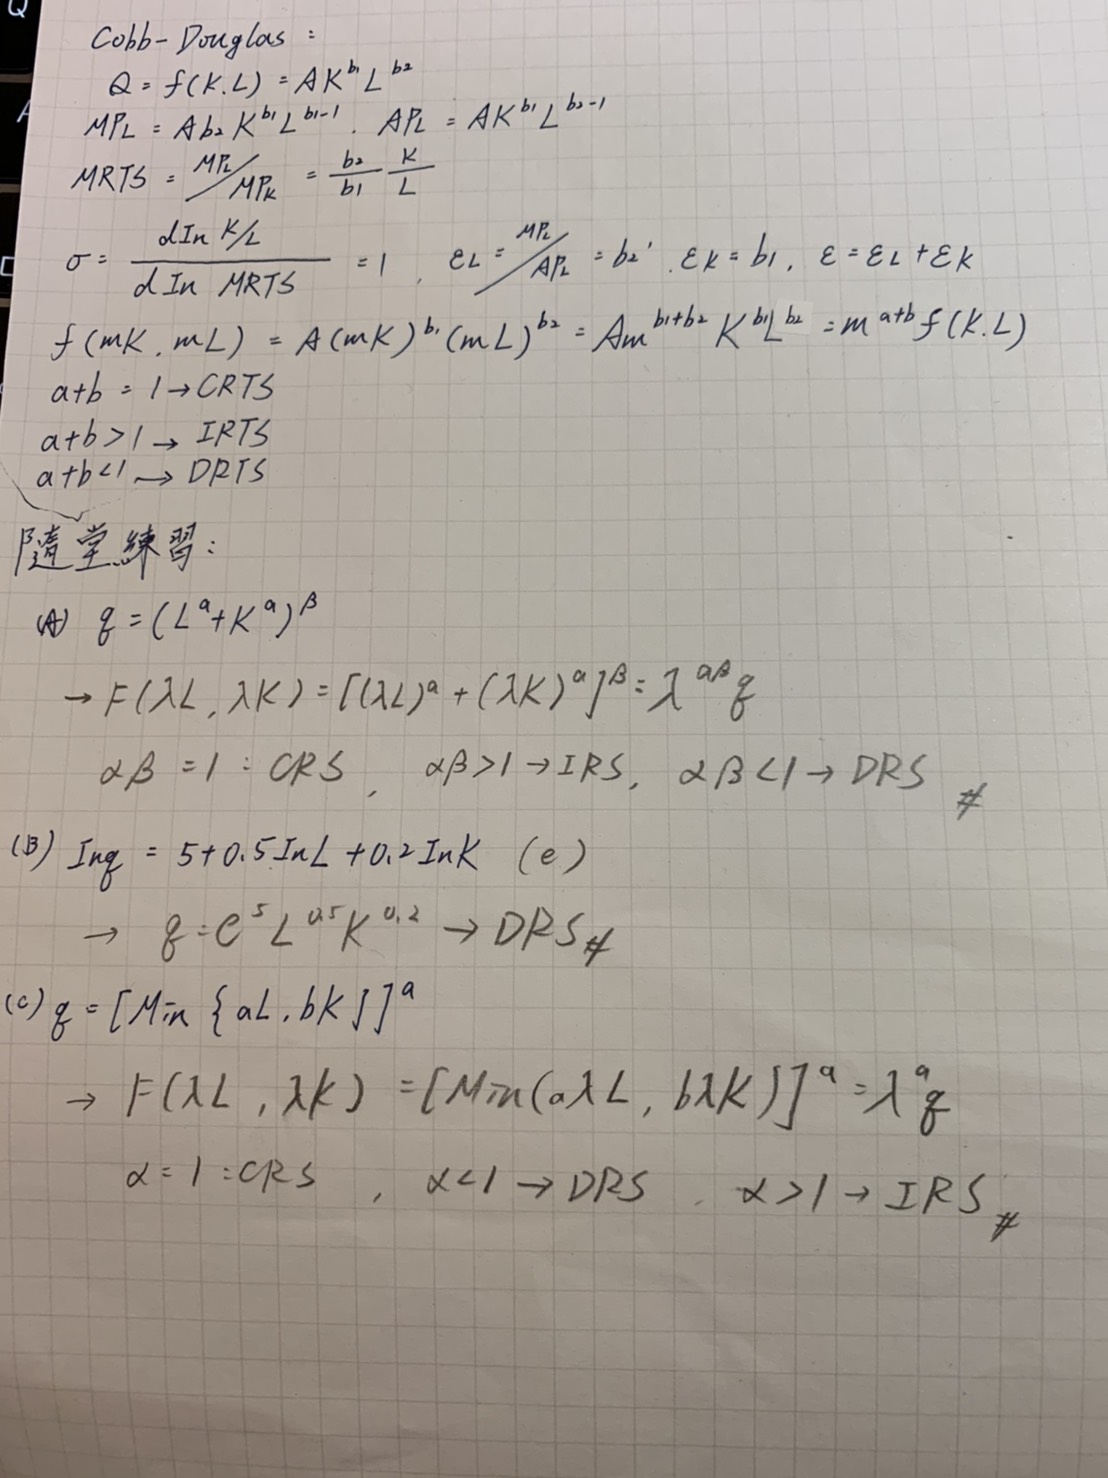 Cobb-Douglas :
Q = f(K.L) = AK^b1 L^b2
MPL = Ab2 K^b1 L^b1-1 . APL = AK^b1 L^b2-1
MRTS = MPL/MPK = b2/b1 K/L
σ = dInK/L / dIn MRTS = 1 , εL = MPL/APL = b2' . εK = b1 , ε = εL + εK
f(mK, mL) = A(mK)^b1 (mL)^b2 = Am^b1+b2 K^b1 L^b2 = m^a+b f(K.L)
a+b = 1 → CRTS
a+b > 1 → IRTS
a+b < 1 → DRTS
隨堂練習:
(A) q = (L^a + K^a)^β
→ F(λL, λK) = [(λL)^a + (λK)^a]^β = λ^aβ q
αβ = 1 : CRS , αβ > 1 → IRS, αβ < 1 → DRS #
(B) Inq = 5+0.5InL+0.2InK (e)
→ q = e^5 L^0.5 K^0.2 → DRS #
(C) q = [Min {aL, bK}]^a
→ F(λL, λK) = [Min(aλL, bλK)]^a = λ^a q
α = 1 : CRS , α < 1 → DRS . α > 1 → IRS #